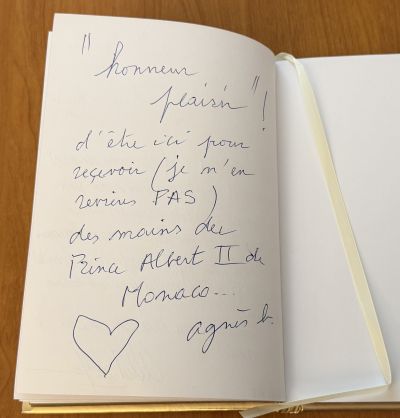 "honneur
plaisir"!
d'être ici pour
reçevoir (je n'en
reviens PAS)
des mains du
Prince Albert II de
Monaco...
agnès b.